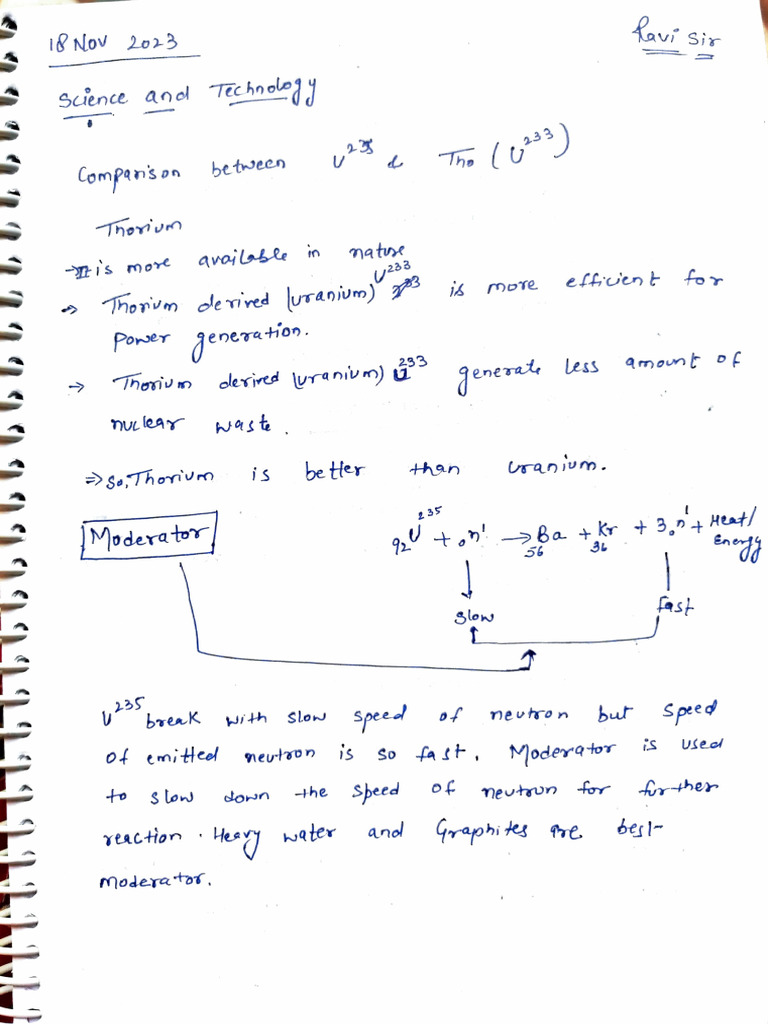 18 Nov 2023
Ravi Sir
Science and Technology
Comparison between U²³⁵ & Tho (U²³³)
Thorium
→ It is more available in nature
→ Thorium derived (uranium) U²³³ is more efficient for
power generation.
→ Thorium derived (uranium) U²³³ generate less amount of
nuclear waste.
⇒ So, Thorium is better than uranium.
Moderator
₉₂U²³⁵ + ₀n¹ → ₅₆Ba + ₃₆Kr + 3₀n¹ + Heat/
Energy
slow
fast
U²³⁵ break with slow speed of neutron but speed
of emitted neutron is so fast. Moderator is used
to slow down the speed of neutron for further
reaction. Heavy water and Graphites are best
moderator.